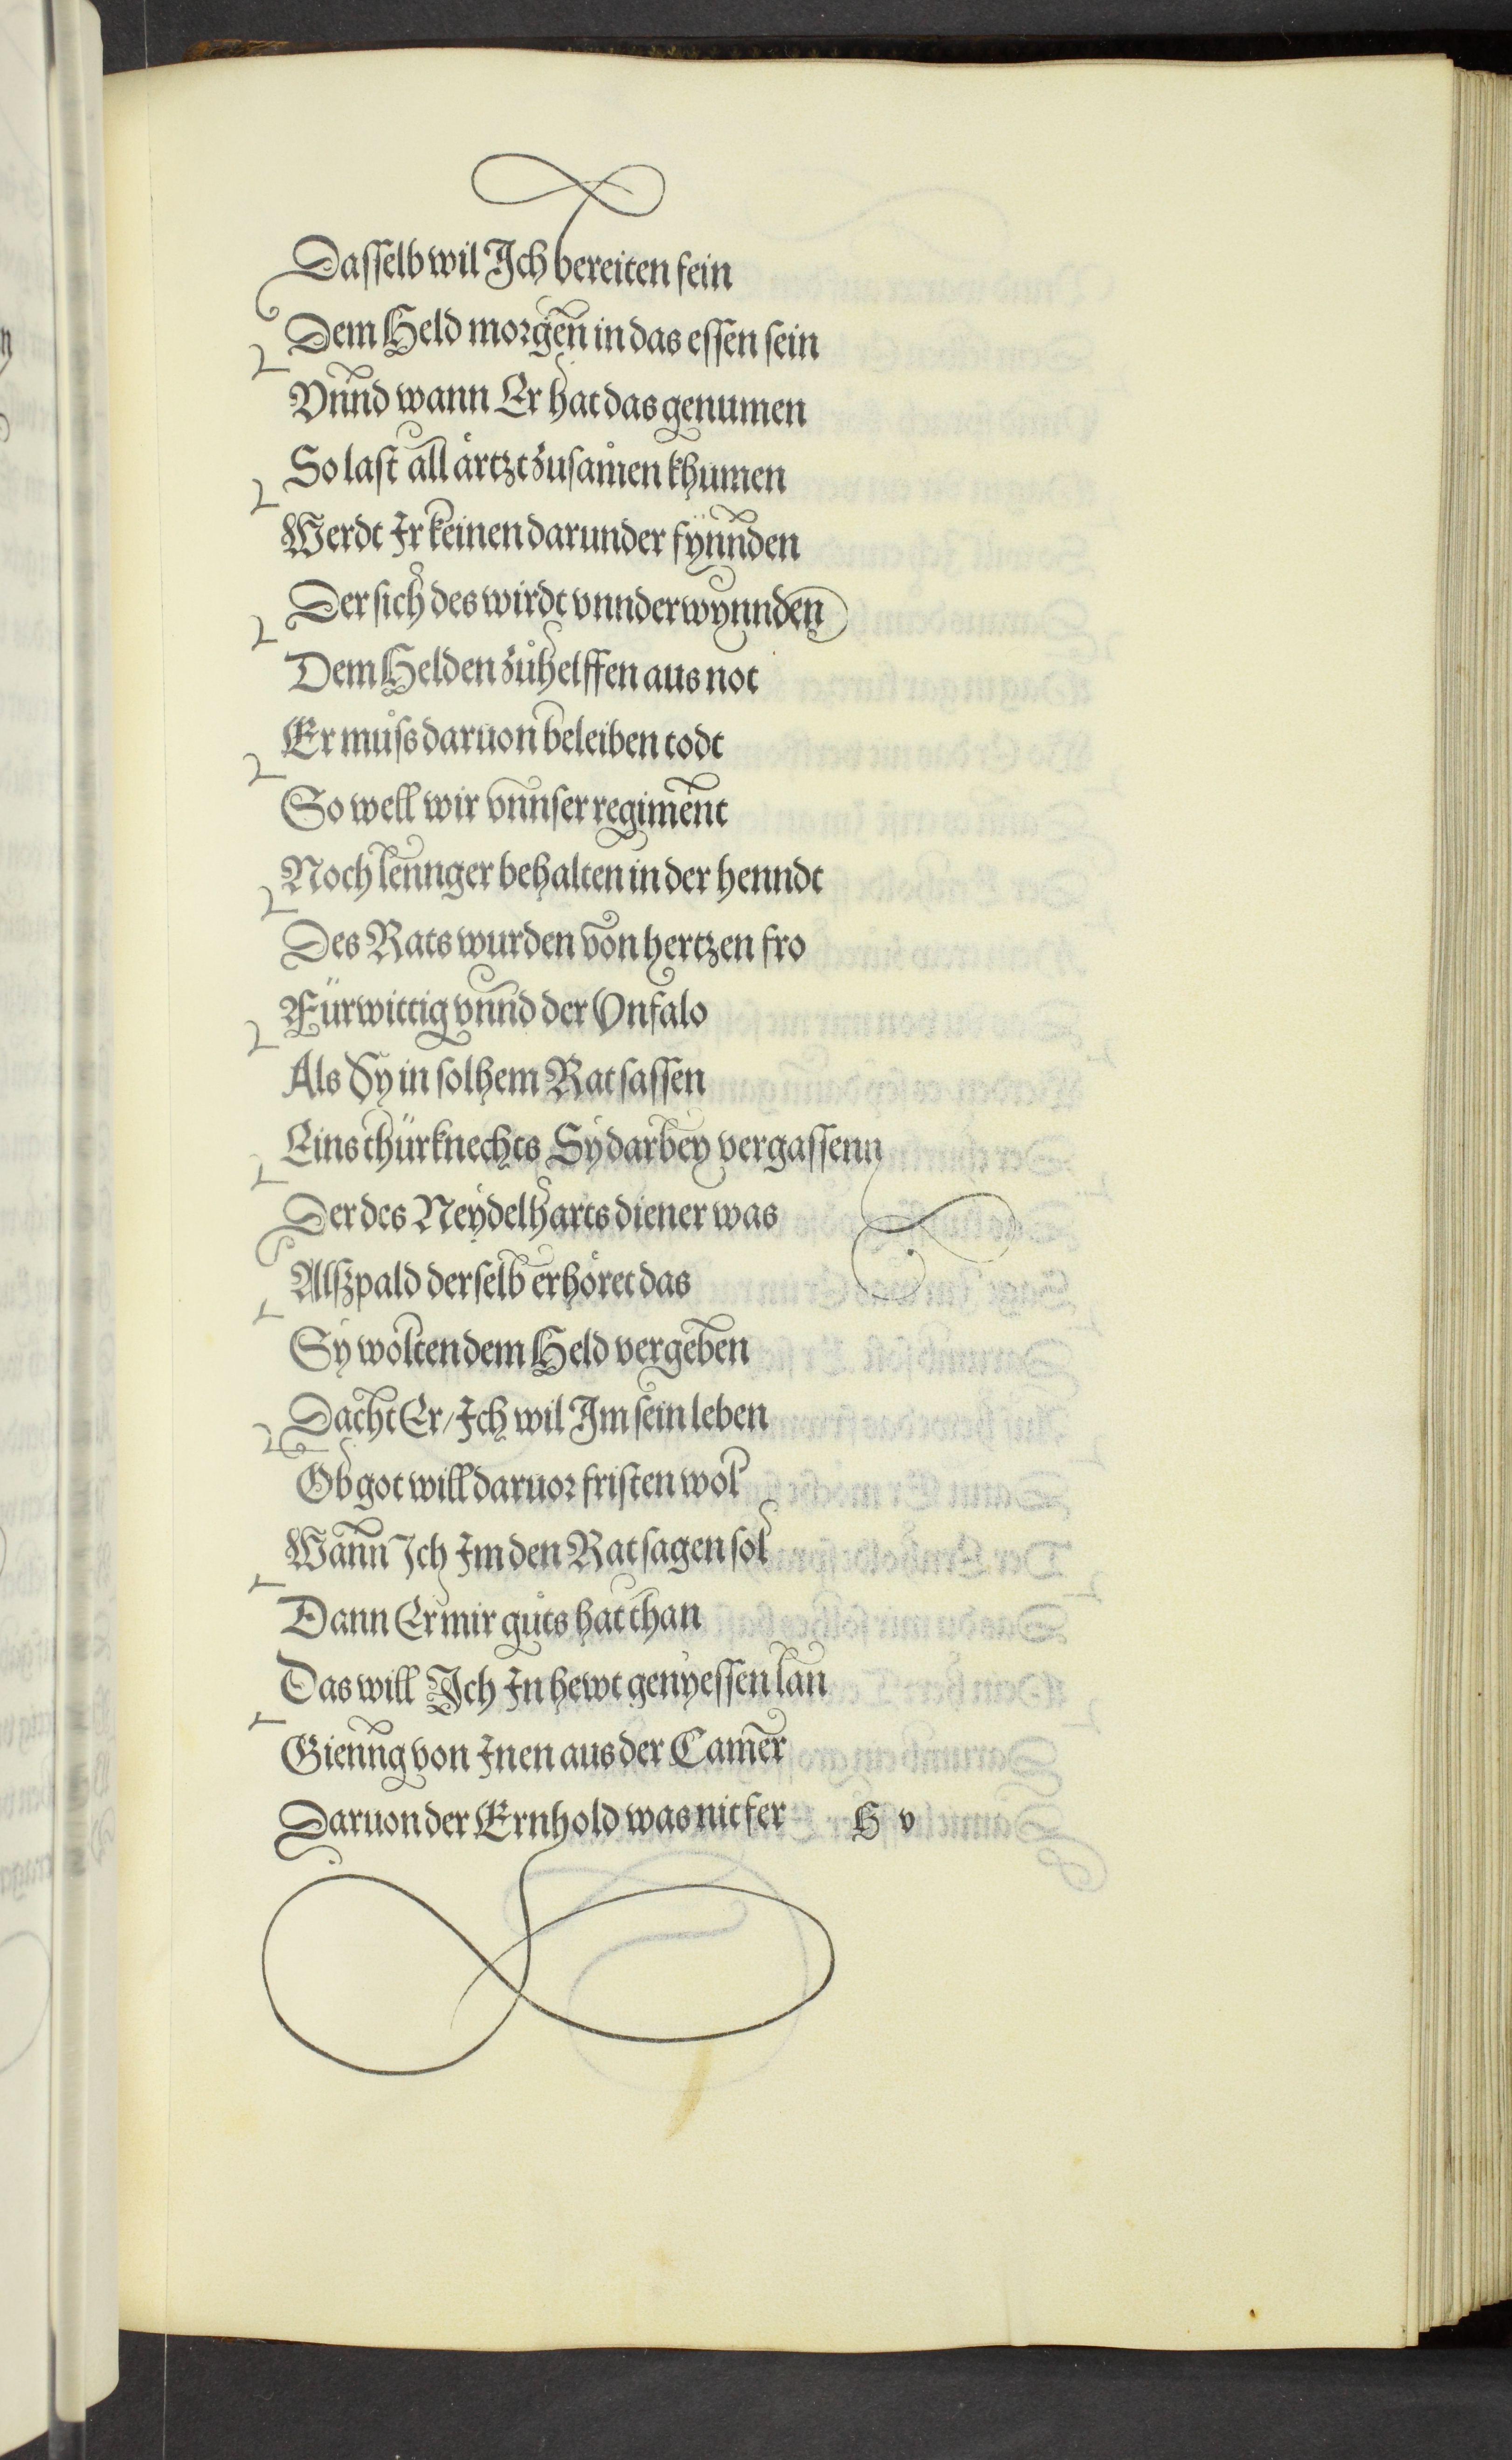 Dasselb wil Jch bereiten fein
Dem Held morgen in das essen sein
Vnnd wann Er hat das genumen
So last all ärtzt zusamen khumen
Werdt Jr keinen darunder fynnden
Der sich des wirdt vnnderwynnden
Dem Helden zů helffen aus not
Er můss daruon beleiben todt
So well wir vnnser regiment
Noch lennger behalten in der henndt
Des Rats wurden von hertzen fro
Fürwittig vnnd der Vnfalo
Als Sy in solhem Rat sassen
Eins thürknechts Sy darbey vergassenn
Der des Neydelharts diener was
Alszpald derselb erhöret das
Sy wolten dem Held vergeben
Dacht Er/ Jch wil Jm sein leben
Ob got will daruor fristen wol
Wann Jch Jm den Rat sagen sol
Dann Er mir gůts hat than
Das will Jch Jn hewt genyessen lan
Gienng von Jnen aus der Camer
Daruon der Ernhold was nit fer
H v